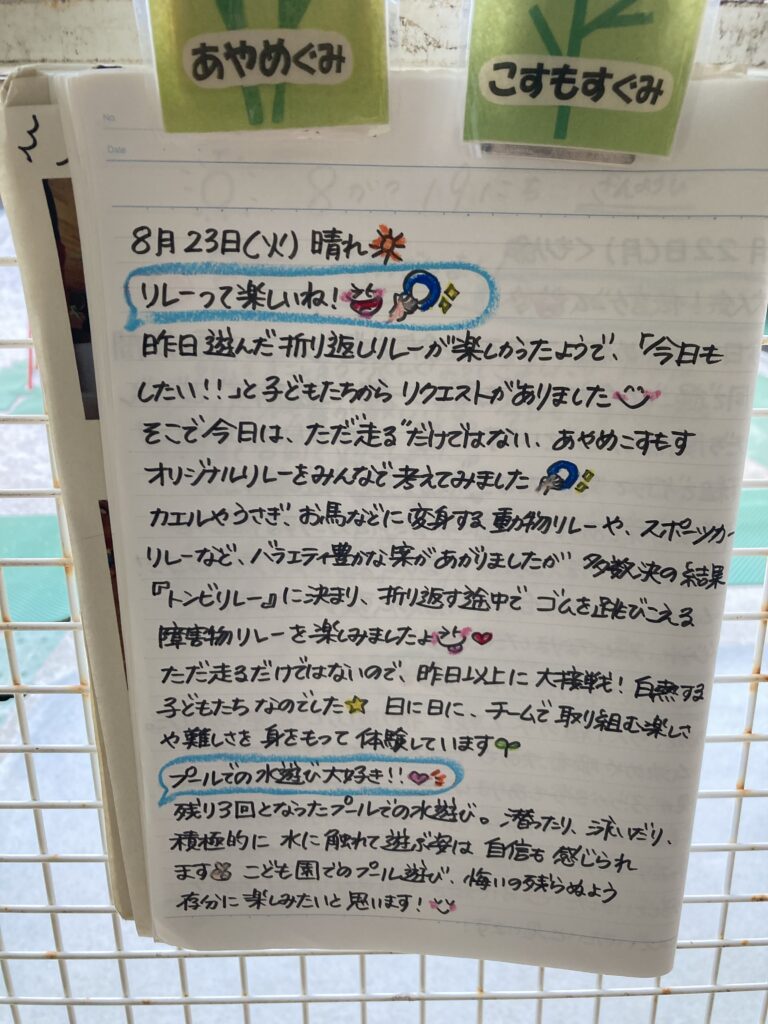 あやめぐみ
こすもすぐみ
No.
Date
8月23日(火) 晴れ
リレーって楽しいね!
昨日遊んだ折り返しリレーが楽しかったようで、「今日も
したい!!」と子どもたちからリクエストがありました
そこで今日は、ただ走るだけではない、あやめこすもす
オリジナルリレーをみんなで考えてみました
カエルやうさぎ、お馬などに変身する動物リレーや、スポーツカー
リレーなど、バラエティ豊かな案があがりましたが 多数決の結果
『トンビリレー』に決まり、折り返す途中でゴムを跳びこえる
障害物リレーを楽しみましたよ
ただ走るだけではないので、昨日以上に大接戦!白熱する
子どもたちなのでした 日に日に、チームで取り組む楽しさ
や難しさを身をもって体験しています
プールでの水遊び大好き!!
残り3回となったプールでの水遊び。潜ったり、泳いだり、
積極的に水に触れて遊ぶ姿は自信も感じられ
ます こども園でのプール遊び、悔いの残らぬよう
存分に楽しみたいと思います!